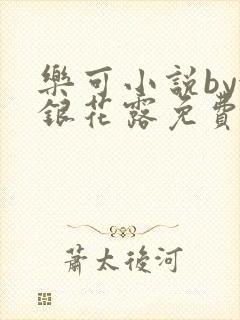 樂可小說by
銀花露免費
蕭太後河